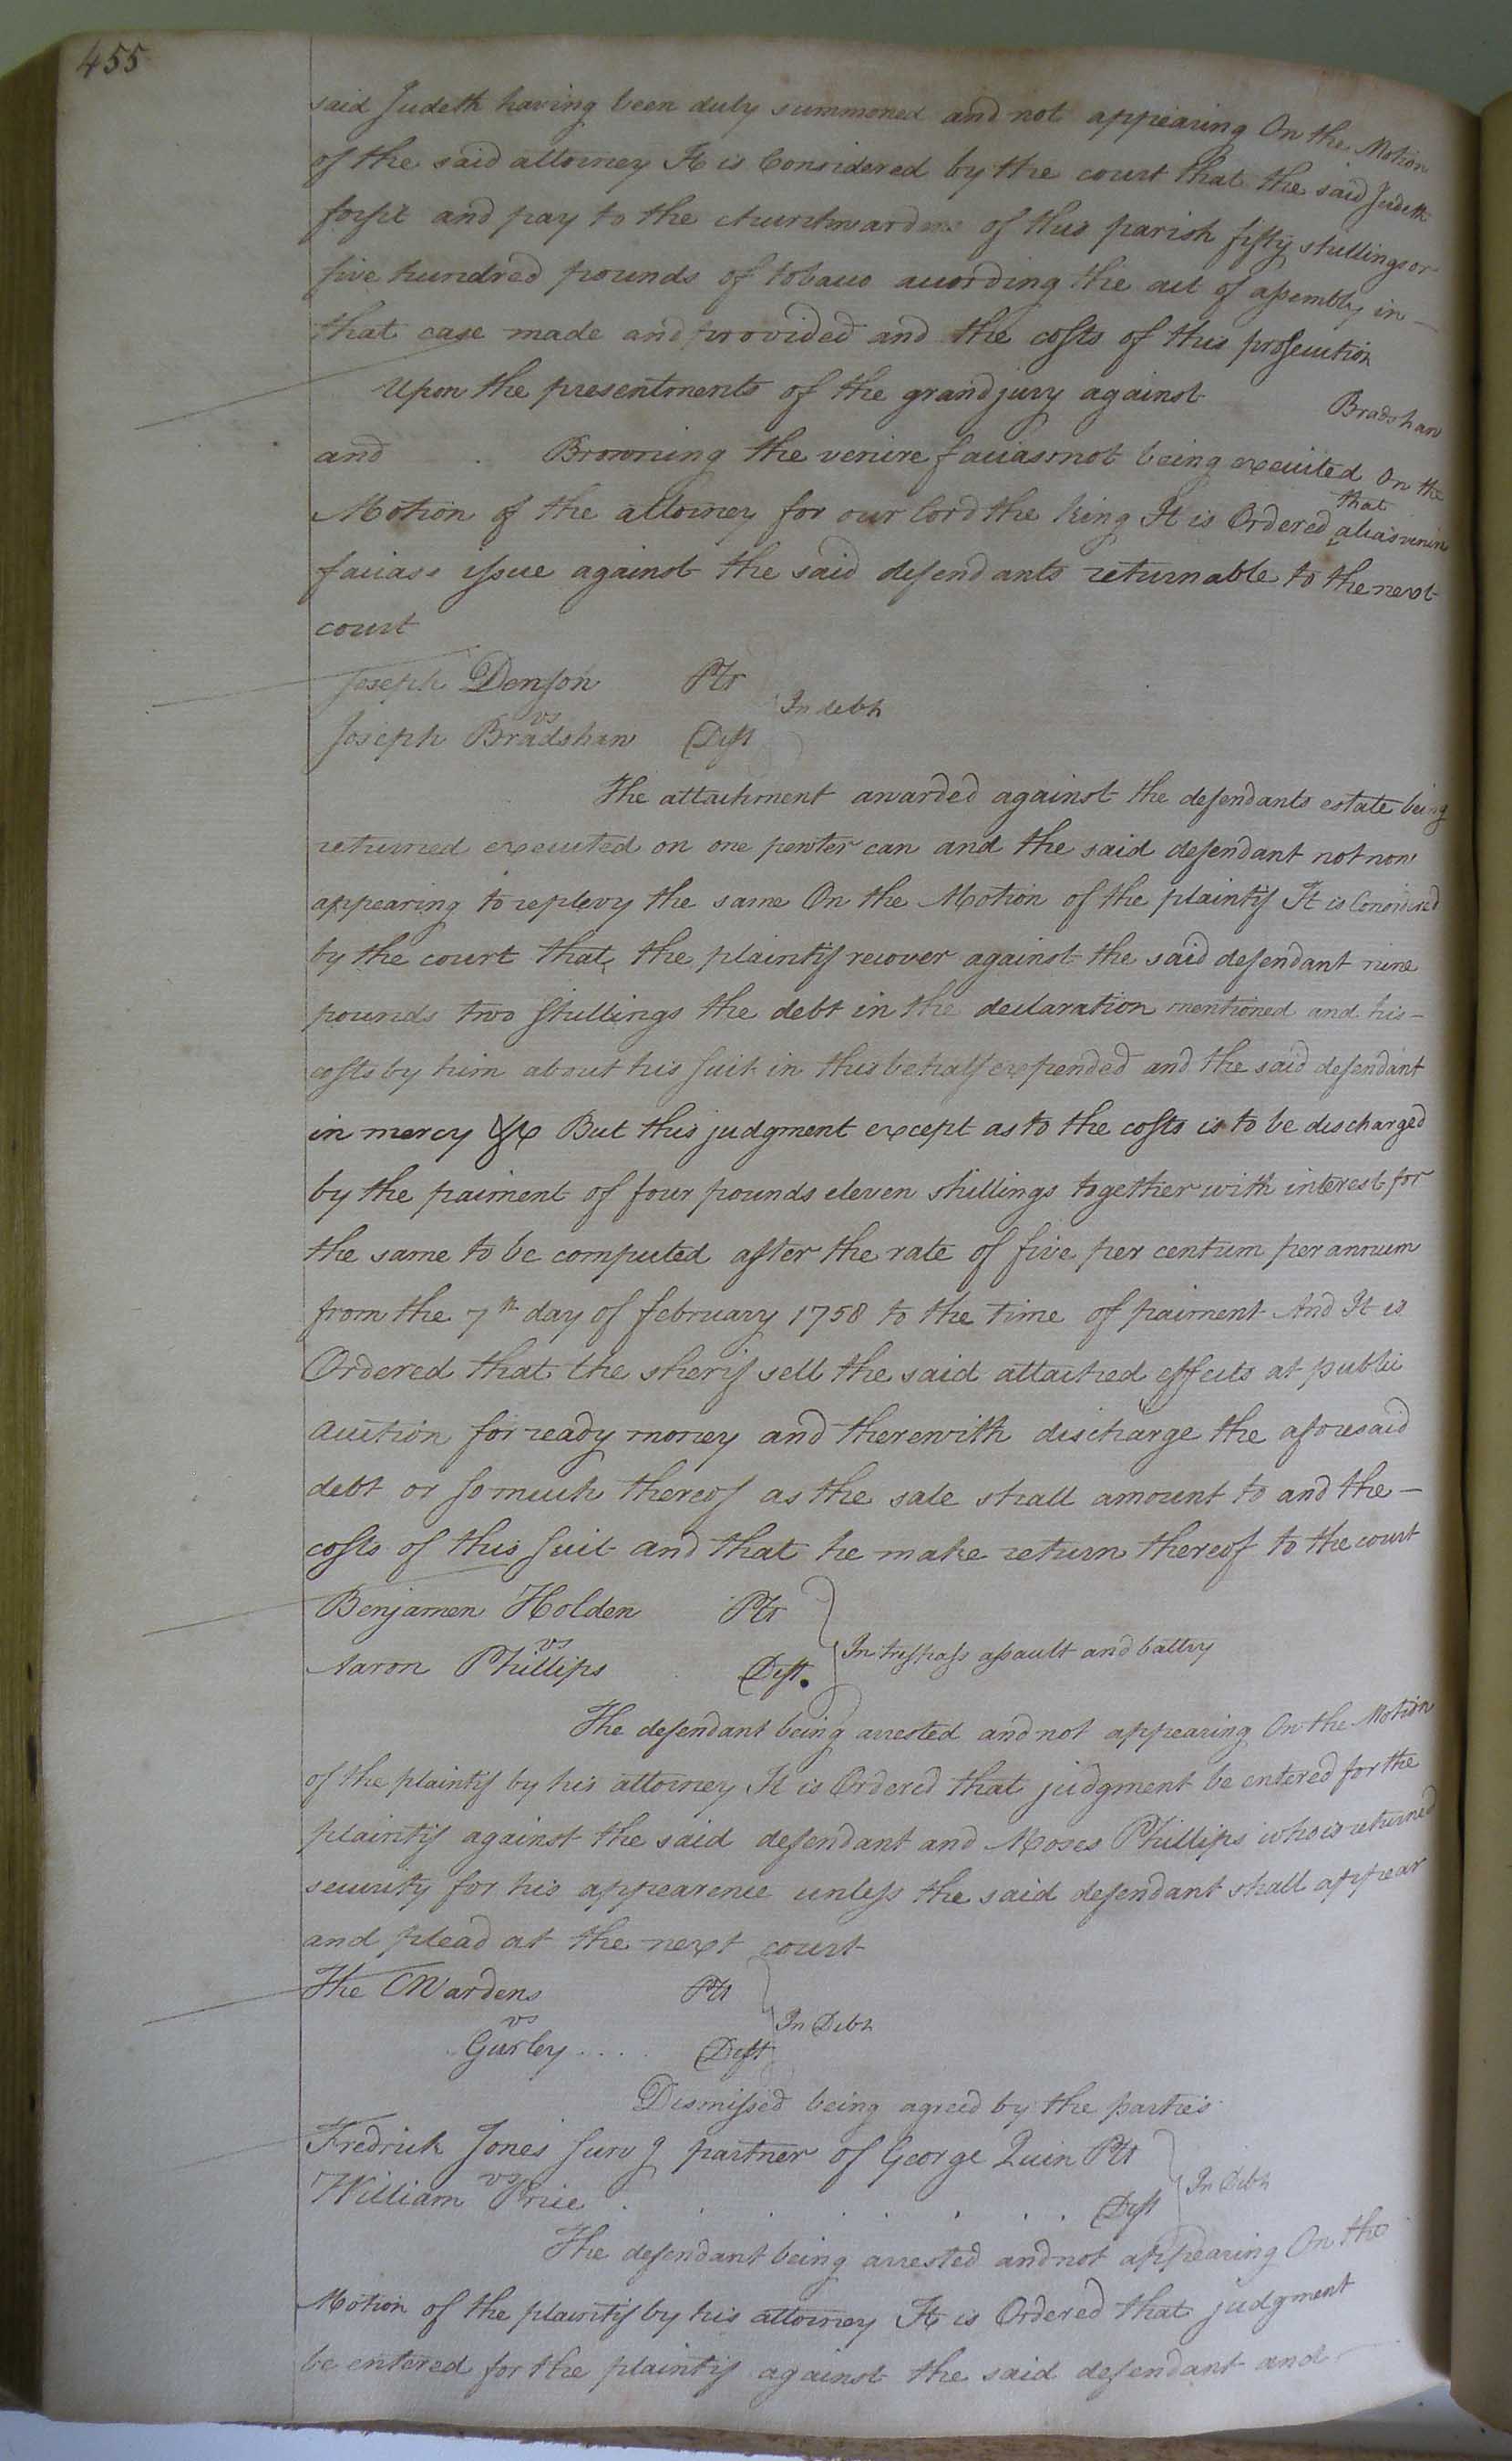 455
said Judeth having been duly summoned and not appearing On the Motion
of the said attorney It is Considered by the court that the said Judeth
forfit and pay to the churchwardens of this parish fifty shillings or
five hundred pounds of tobacco according the act of assembly in —
that case made and provided and the costs of this prosecution
Upon the presentments of the grandjury against Bradshaw
and . Browning the venire facias not being executed On the
Motion of the attorney for our lord the king It is Ordered that alias venire
facias issue against the said defendants returnable to the next
court
Joseph Denson Plt
vs In debt
Joseph Bradshaw Deft
The attachment awarded against the defendants estate being
returned executed on one pewter can and the said defendant not now
appearing to replevy the same On the Motion of the plaintif It is Considered
by the court that the plaintif recover against the said defendant nine
pounds two shillings the debt in the declaration mentioned and his —
costs by him about his suit in this behalf expended and the said defendant
in mercy &c But this judgment except as to the costs is to be discharged
by the paiment of four pounds eleven shillings together with interest for
the same to be computed after the rate of five per centum per annum
from the 7th day of february 1758 to the time of paiment And It is
Ordered that the sherif sell the said attached effects at public
auction for ready money and therewith discharge the aforesaid
debt or so much thereof as the sale shall amount to and the —
costs of this suit and that he make return thereof to the court
Benjamen Holden Plt
vs In trespass assault and battry
Aaron Phillips Deft.
The defendant being arrested and not appearing On the Motion
of the plaintif by his attorney It is Ordered that judgment be entered for the
plaintif against the said defendant and Moses Phillips who is returned
security for his appearence unless the said defendant shall appear
and plead at the next court
The CWardens Plt
vs In Debt
Gurley .... Deft
Dismissed being agreed by the parties
Fredrick Jones surv g partner of George Quin Plt
vs In Debt
William Price . . . . . . . Deft
The defendant being arrested and not appearing On the
Motion of the plaintif by his attorney It is Ordered that judgment
be entered for the plaintif against the said defendant and